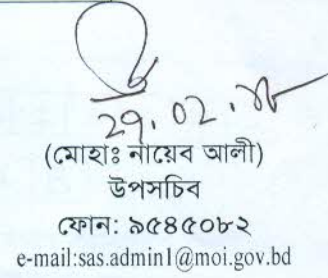 29.02.
(মোহাঃ নায়েব আলী)
উপসচিব
ফোন: ৯৫৪৫০৮২
e-mail:sas.admin1@moi.gov.bd